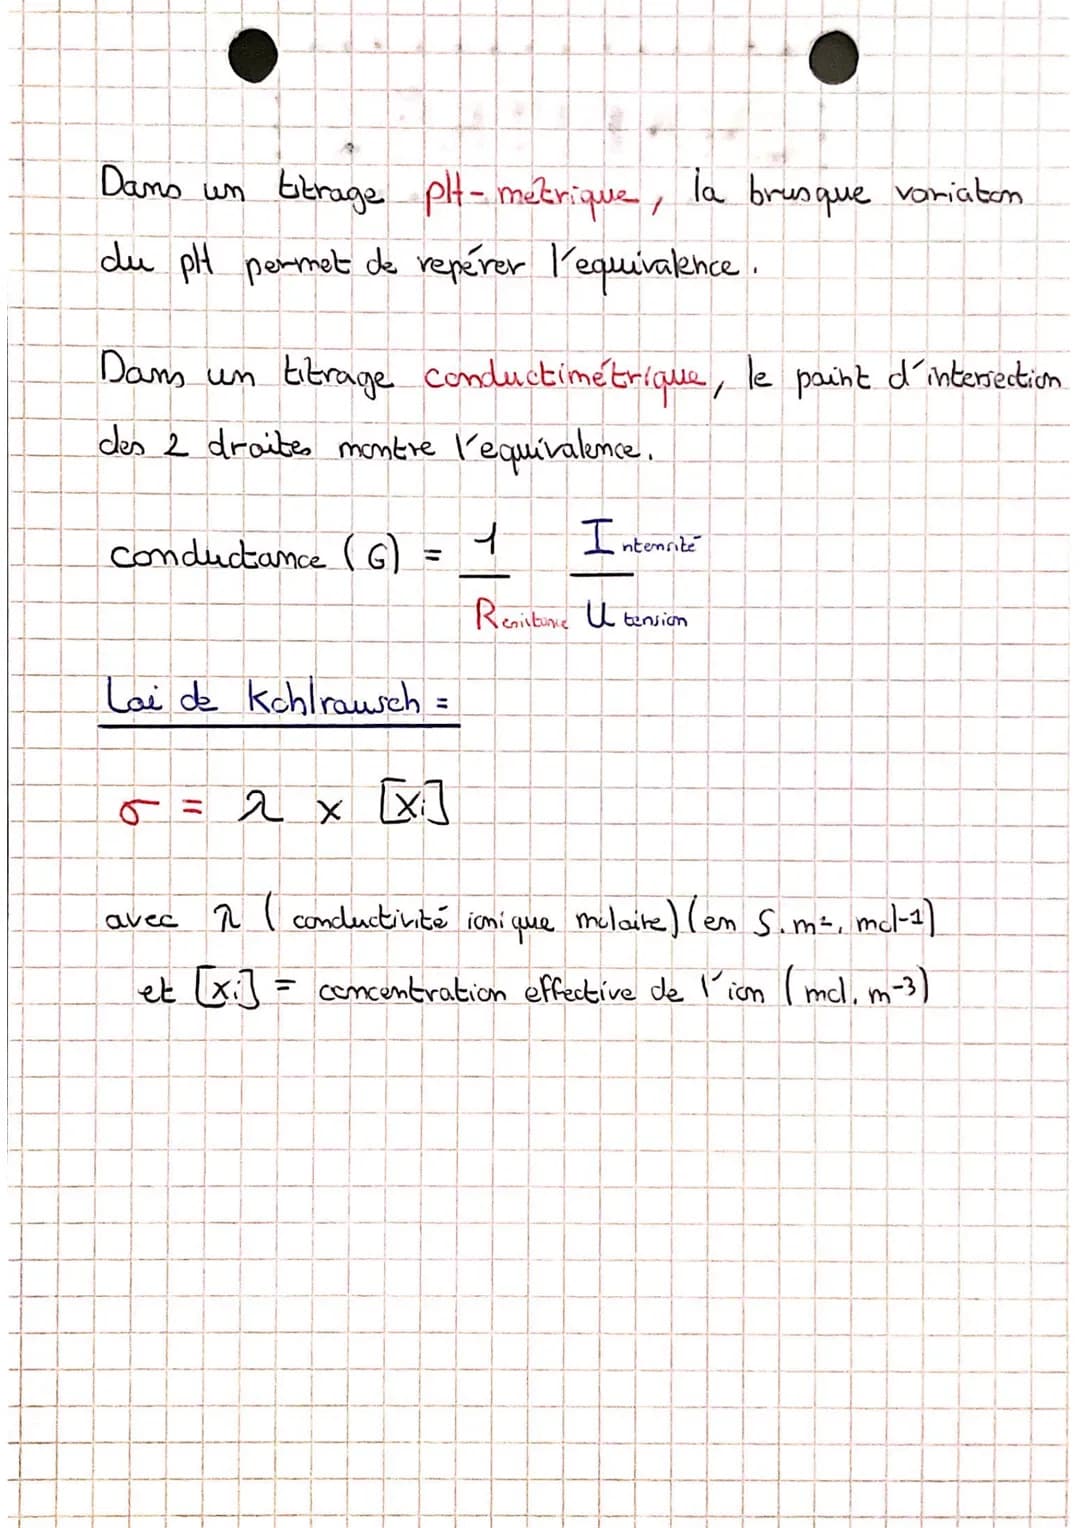 Dans un titrage pH-métrique, la brusque variaton
du pH permet de repérer l'equivalence.
Dans un titrage conductimétrique, le point d'intersection
des 2 droites montre l'equivalence.
conductance (G) = 1 Intensité
Resistance U tension
Loi de Kohlrausch =
σ = λ x [Xi]
avec λ (conductivité ionique molaire) (en S.m². mol-1)
et [Xi] = concentration effective de l'ion (mol. m-3)